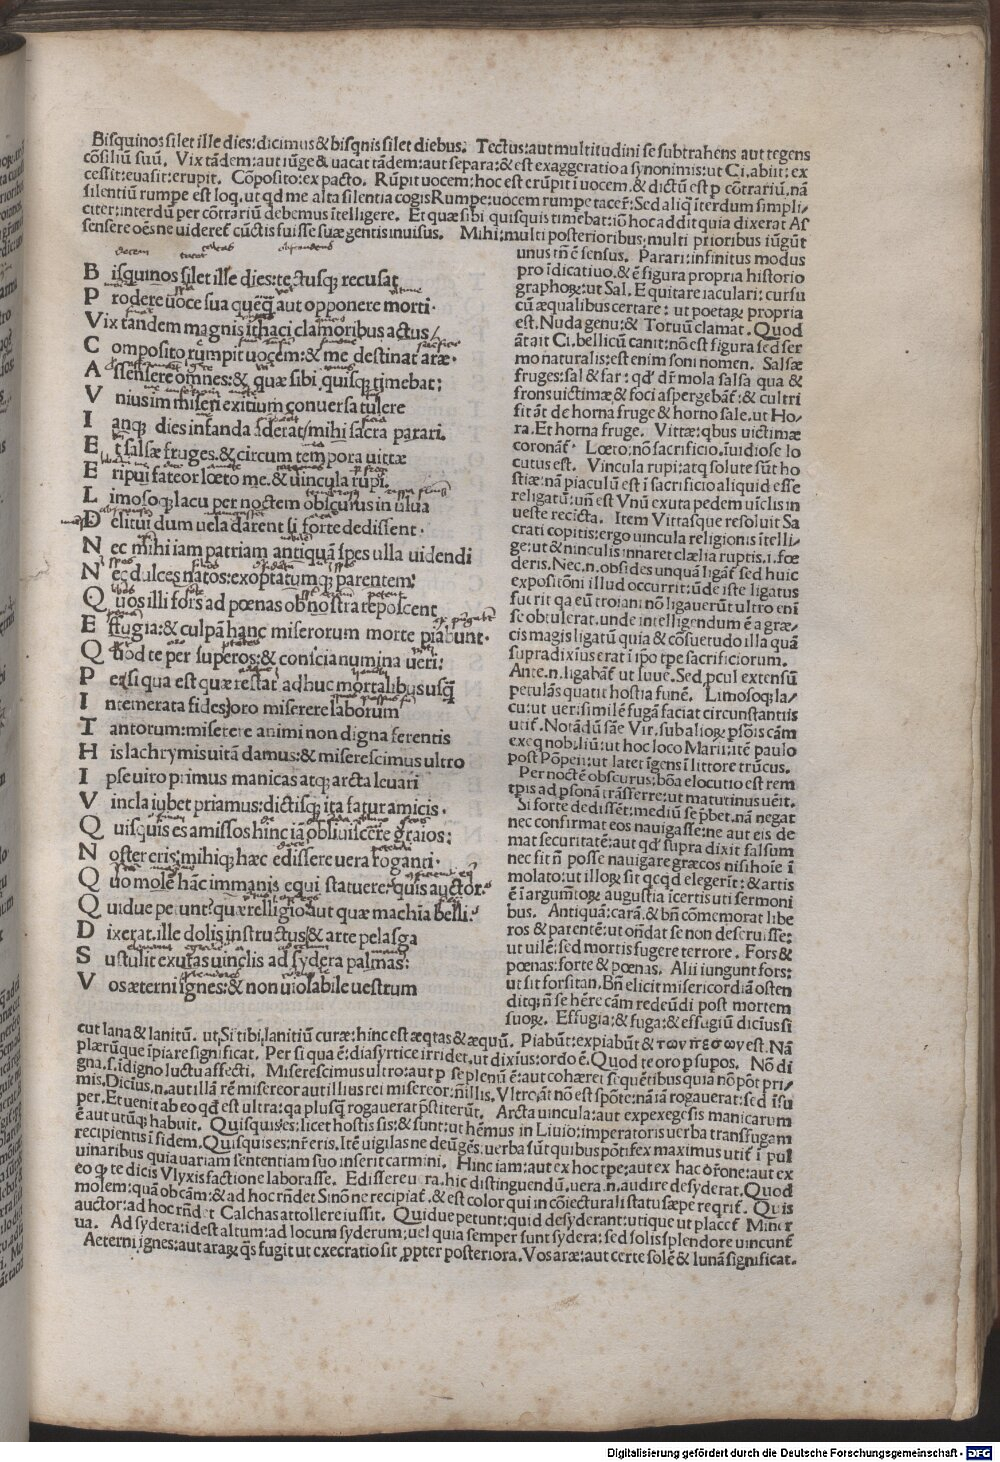 Bisquinos silet ille dies: dicimus & bisqnis silet diebus. Tectus: aut multitudini se subtrahens aut tegens
cõsiliũ suũ. Vix tãdem: aut iũge & uacat tãdem: aut separa: & est exaggeratio a synonimis: ut Ci. abiit: ex
cessit: euasit: erupit. Cõposito: ex pacto. Rũpit uocem: hoc est erũpit ĩ uocem. & dictũ est p cõtrariũ. nã
silentiũ rumpe est loq. ut qd me alta silentia cogis Rumpe: uocem rumpe tacere: Sed aliq ĩterdum simpli/
citer: interdũ per cõtrariũ debemus ĩtelligere. Et quæ sibi quisquis timebat: iõ hoc addit quia dixerat As
sensere oẽs ne uideret cũctis fuisse suæ gentis inuisus. Mihi: multi posterioribus, multi prioribus iũgũt
unus tñ ẽ sensus. Parari: infinitus modus
pro ĩdicatiuo. & ẽ figura propria historio
graphoꝝ: ut Sal. Equitare iaculari: cursu
cũ æqualibus certare: ut poetaꝝ propria
est. Nuda genu: & Toruũ clamat. Quod
ãt ait Ci. bellicũ canit: nõ est figura sed ser
mo naturalis: est enim soni nomen. Salsæ
fruges: sal & far: qd' dr̃ mola salsa qua &
frons uictimæ & foci aspergebãt: & cultri
fit ãt de horna fruge & horno sale. ut Ho/
ra. Et horna fruge. Vittæ: qbus uictimæ
coronãt. Lœto: nõ sacrificio. ĩuidiose lo
cutus est. Vincula rupi: atq solute sũt ho
stiæ: nã piaculũ est ĩ sacrificio aliquid esse
religatũ: uñ est Vnũ exuta pedem uĩclis in
ueste recĩcta. Item Vittasque resoluit Sa
crati capitis: ergo uincula religionis ĩtelli/
ge: ut & uinculis innaret clælia ruptis. i. fœ
deris. Nec. n. obsides unquã ligãt sed huic
expositõni illud occurrit: ũde iste ligatus
fuerit qa eũ troiani nõ ligauerũt ultro enĩ
se obtulerat. unde intelligendum ẽ a græ/
cis magis ligatũ quia & cõsuetudo illa quã
supra dixi userat ĩ ipo tpe sacrificiorum.
Ante. n. ligabãt ut Iuue. Sed pcul extensũ
petulãs quatit hostia funẽ. Limosoq; la/
cu: ut uerisimilẽ fugã faciat circunstantiis
utit. Notãdũ sãe Vir. sub alioꝝ psõis cãm
exeq nobiliũ: ut hoc loco Marii: itẽ paulo
post Põpeii: ut latet ĩgens ĩ littore trũcus.
Per noctẽ obscurus: bõa elocutio est rem
tpis ad psonã trãsferre: ut maturinus uẽit.
Si forte dedissẽt: mediũ se pbet. nã negat
nec confirmat eos nauigasse: ne aut eis de
mat securitatẽ: aut qd' supra dixit falsum
nec fit ñ posse nauigare græcos nisi hoĩe ĩ
molato: ut illoꝝ sit qcqd elegerĩt: & artis
ẽ ĩ argumẽtoꝝ augustia ĩcertis uti sermoni
bus. Antiquã: carã. & bñ cõmemorat libe
ros & parentẽ: ut oñdat se non deseruisse:
ut uilẽ: sed mortis fugere terrore. Fors &
pœnas: forte & pœnas. Alii iungunt fors:
ut sit forsitan. Bñ elicit misericordiã osten
ditq; ñ se hẽre cãm redeũdi post mortem
suoꝝ. Effugia: & fuga: & effugiũ dicĩus si
B isquinos silet ille dies: tectusq; recusat
P rodere uoce sua queq̃ aut opponere morti.
V ix tandem magnis ithaci clamoribus actus/
C omposito rumpit uocem: & me destinat aræ.
A ssensere omnes: & quæ sibi quisq; timebat:
V nius im miseri exitium conuersa tulere
I anq; dies infanda aderat/ mihi sacra parari.
E t salsæ fruges. & circum tempora uittæ
E ripui fateor lœto me. & uincula rupi.
L imosoq; lacu per noctem obscurus in ulua
D elitui dum uela darent si forte dedissent.
N ec mihi iam patriam antiquã spes ulla uidendi
N ec dulces natos: exoptatumq; parentem:
Q uos illi fors ad pœnas ob nostra reposcent
E ffugia: & culpã hanc miserorum morte piabunt.
Q uod te per superos: & conscia numina ueri:
P er si qua est quæ restat adhuc mortalibus usq̃
I ntemerata fides oro miserere laborum
T antorum: miserere animi non digna ferentis
H is lachrymis uitã damus: & miserescimus ultro
I pse uiro primus manicas atq; arcta leuari
V incla iubet priamus: dictisq; ita fatur amicis.
Q uisquis es amissos hinc iã obliuiscere graios:
N oster eris: mihiq; hæc edissere uera roganti.
Q uo molẽ hãc immanis equi statuere: quis auctor:
Q uidue petunt? quæ relligio: aut quæ machia belli:
D ixerat. ille dolis instructus & arte pelasga
S ustulit exutas uinclis ad sydera palmas:
V os æterni ignes: & non uiolabile uestrum
cut lana & lanitũ. ut, Si tibi lanitiũ curæ: hinc est æqtas & æquũ. Piabũt: expiabũt & των πεσων est. Nã
plærũque ĩpiare significat. Per si qua ẽ: diasyrtice irridet. ut dixius: ordo ẽ. Quod te oro p supos. Nõ di
gna. s. ĩdigno luctu affecti. Miserescimus ultro: aut p se plenũ ẽ: aut cohæret sequẽtibus quia nõ põt pri/
mis. Dicĩus. n. aut illã rẽ misereor aut illius rei misereor: ñ illis. Vltro: ãt nõ est spõte: nã iã rogauerat: sed ĩsu
per. Et uenit ab eo qd' est ultra: qa plusq̃ rogauerat pstiterũt. Arcta uincula: aut expexegesis manicarum
ẽ aut utũq; habuit. Quisquis es: licet hostis sis: & sunt: ut hẽmus in Liuio: imperatoris uerba transfugam
recipientis ĩ fidem. Quisquis es: nr̃ eris. Itẽ uigilas ne deũ gẽs: uerba sũt quibus põtifex maximus utit ĩ pul
uinaribus quia uariam sententiam suo inserit carmini. Hinc iam: aut ex hoc tpe: aut ex hac or̃one: aut ex
eo q; te dicis Vlyxis factione laborasse. Edissere uera. hic distinguendũ. uera. n. audire desyderat. Quod
molem: quã obcãm: & ad hoc rñdet Sinõ ne recipiat. & est color qui in cõiecturali statu sæpe reqrit. Quis
auctor: ad hoc rñdet Calchas attollere iussit. Quidue petunt: quid desyderant: utique ut placet Miner
ua. Ad sydera: idest altum: ad locum syderum: uel quia semper sunt sydera: sed solis splendore uincunt
Aeterni ignes: aut araꝝ qs fugit ut execratio sit ppter posteriora. Vos aræ: aut certe solẽ & lunã significat.
Digitalisierung gefördert durch die Deutsche Forschungsgemeinschaft - DFG